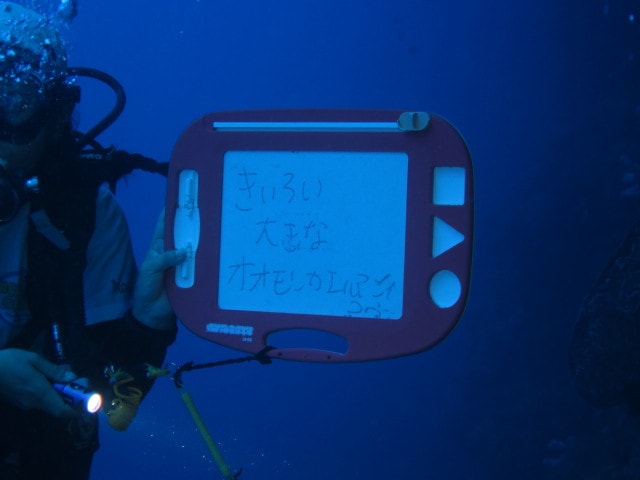 きいろい
大玉な
オオモンカエルアンコウ